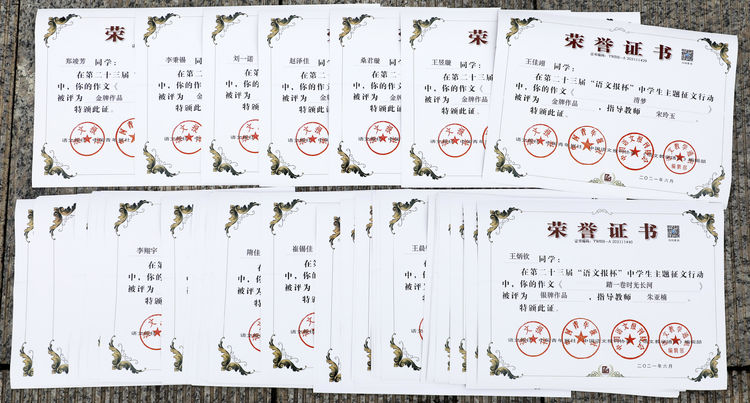 荣
郑竣芳 同学:
在第二十三届
中,你的作文《
被评为 金牌作品
特颁此证。
李秉锡 同
在第
中,你的
被评为
特颁
刘一诺 同
在第
中,你的
被评为
特颁
赵泽佳 同学
在第二
中,你的作
被评为 金牌
特颁此
桑君璇 同学
在第二
中,你的作
被评为 金牌
特颁此
荣
王昱璇 同学:
在第二十三届
中,你的作文《
被评为 金牌作品
特颁此证。
荣誉证书
王佳翊 同学:
在第二十三届“语文报杯”中学生主题征文行动
中,你的作文《 清梦 》
被评为 金牌作品 ,指导教师 宋玲玉
特颁此证。
二〇二一年六月
李翔宇
在第
中,你
被评为
特颁
隋佳
在
中,
被评
特
崔锡佳
在第
中,你
被评为
特颁
王晨
荣誉证书
证书编号:YWBB-A 202111440
王炳钦 同学:
在第二十三届“语文报杯”中学生主题征文行动
中,你的作文《 踏一卷时光长河 》
被评为 银牌作品 ,指导教师 朱亚楠
特颁此证。
二〇二一年六月